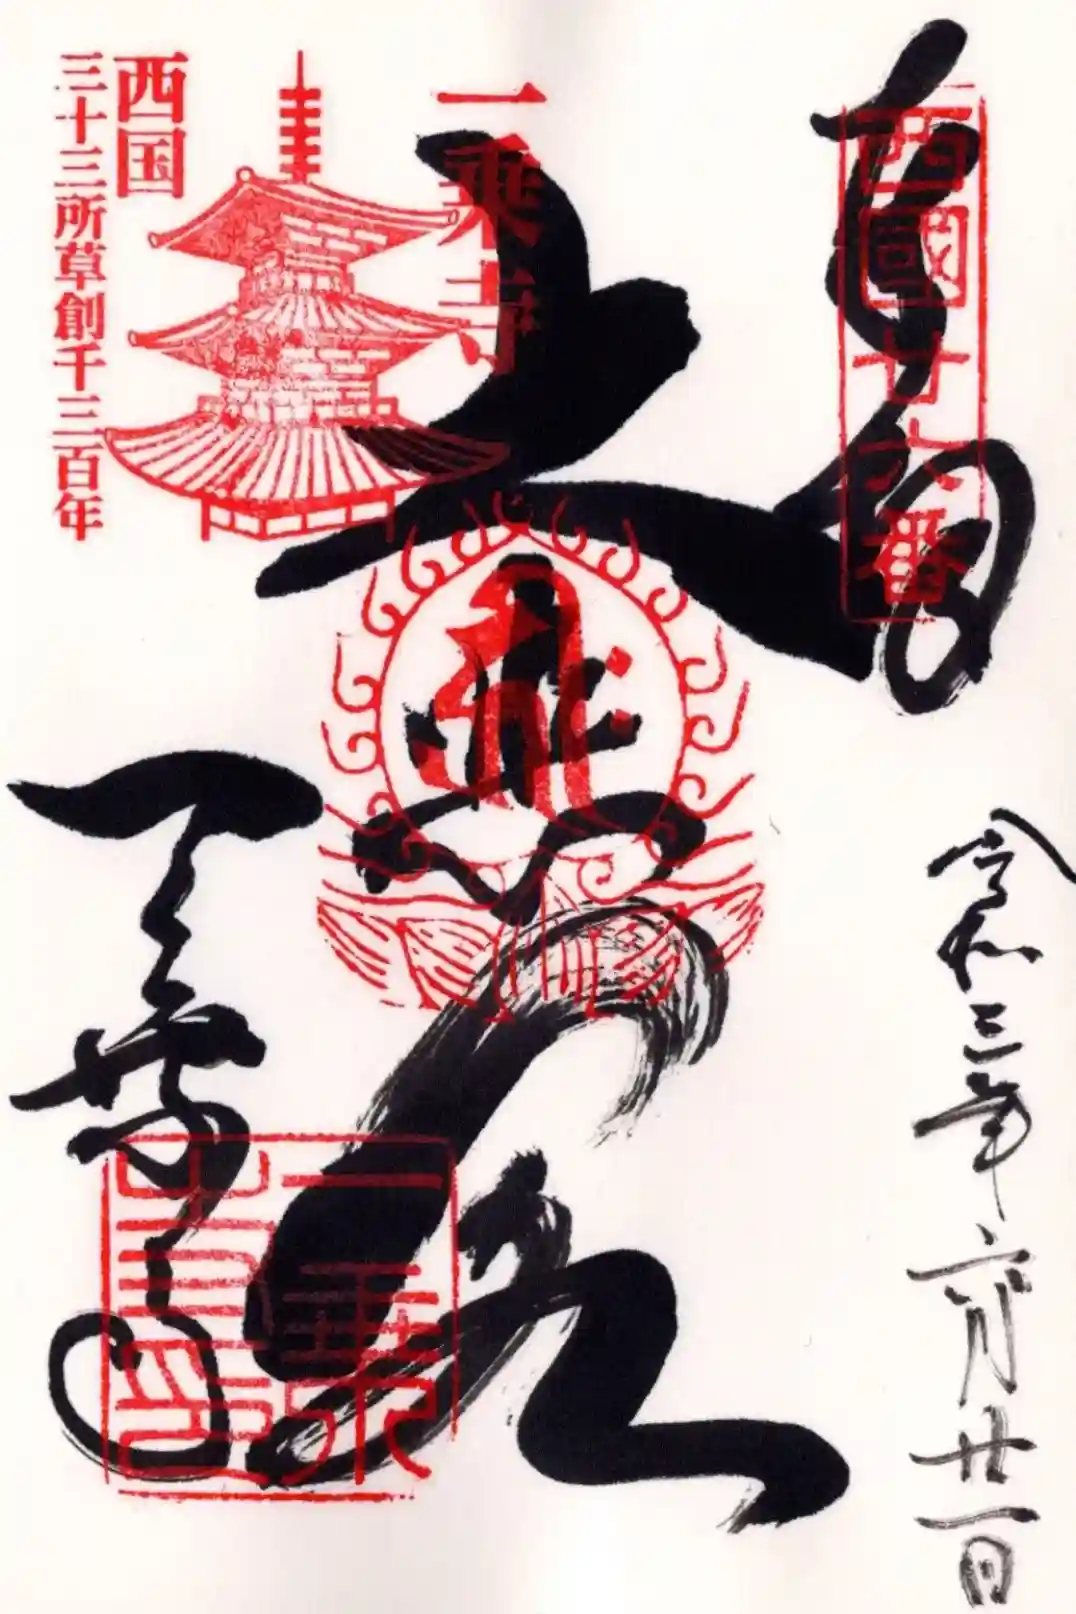 奉拝
西國廿六番
令和三年六月廿一日
大悲殿
一乗寺
西国
三十三所草創千三百年
一乗寺